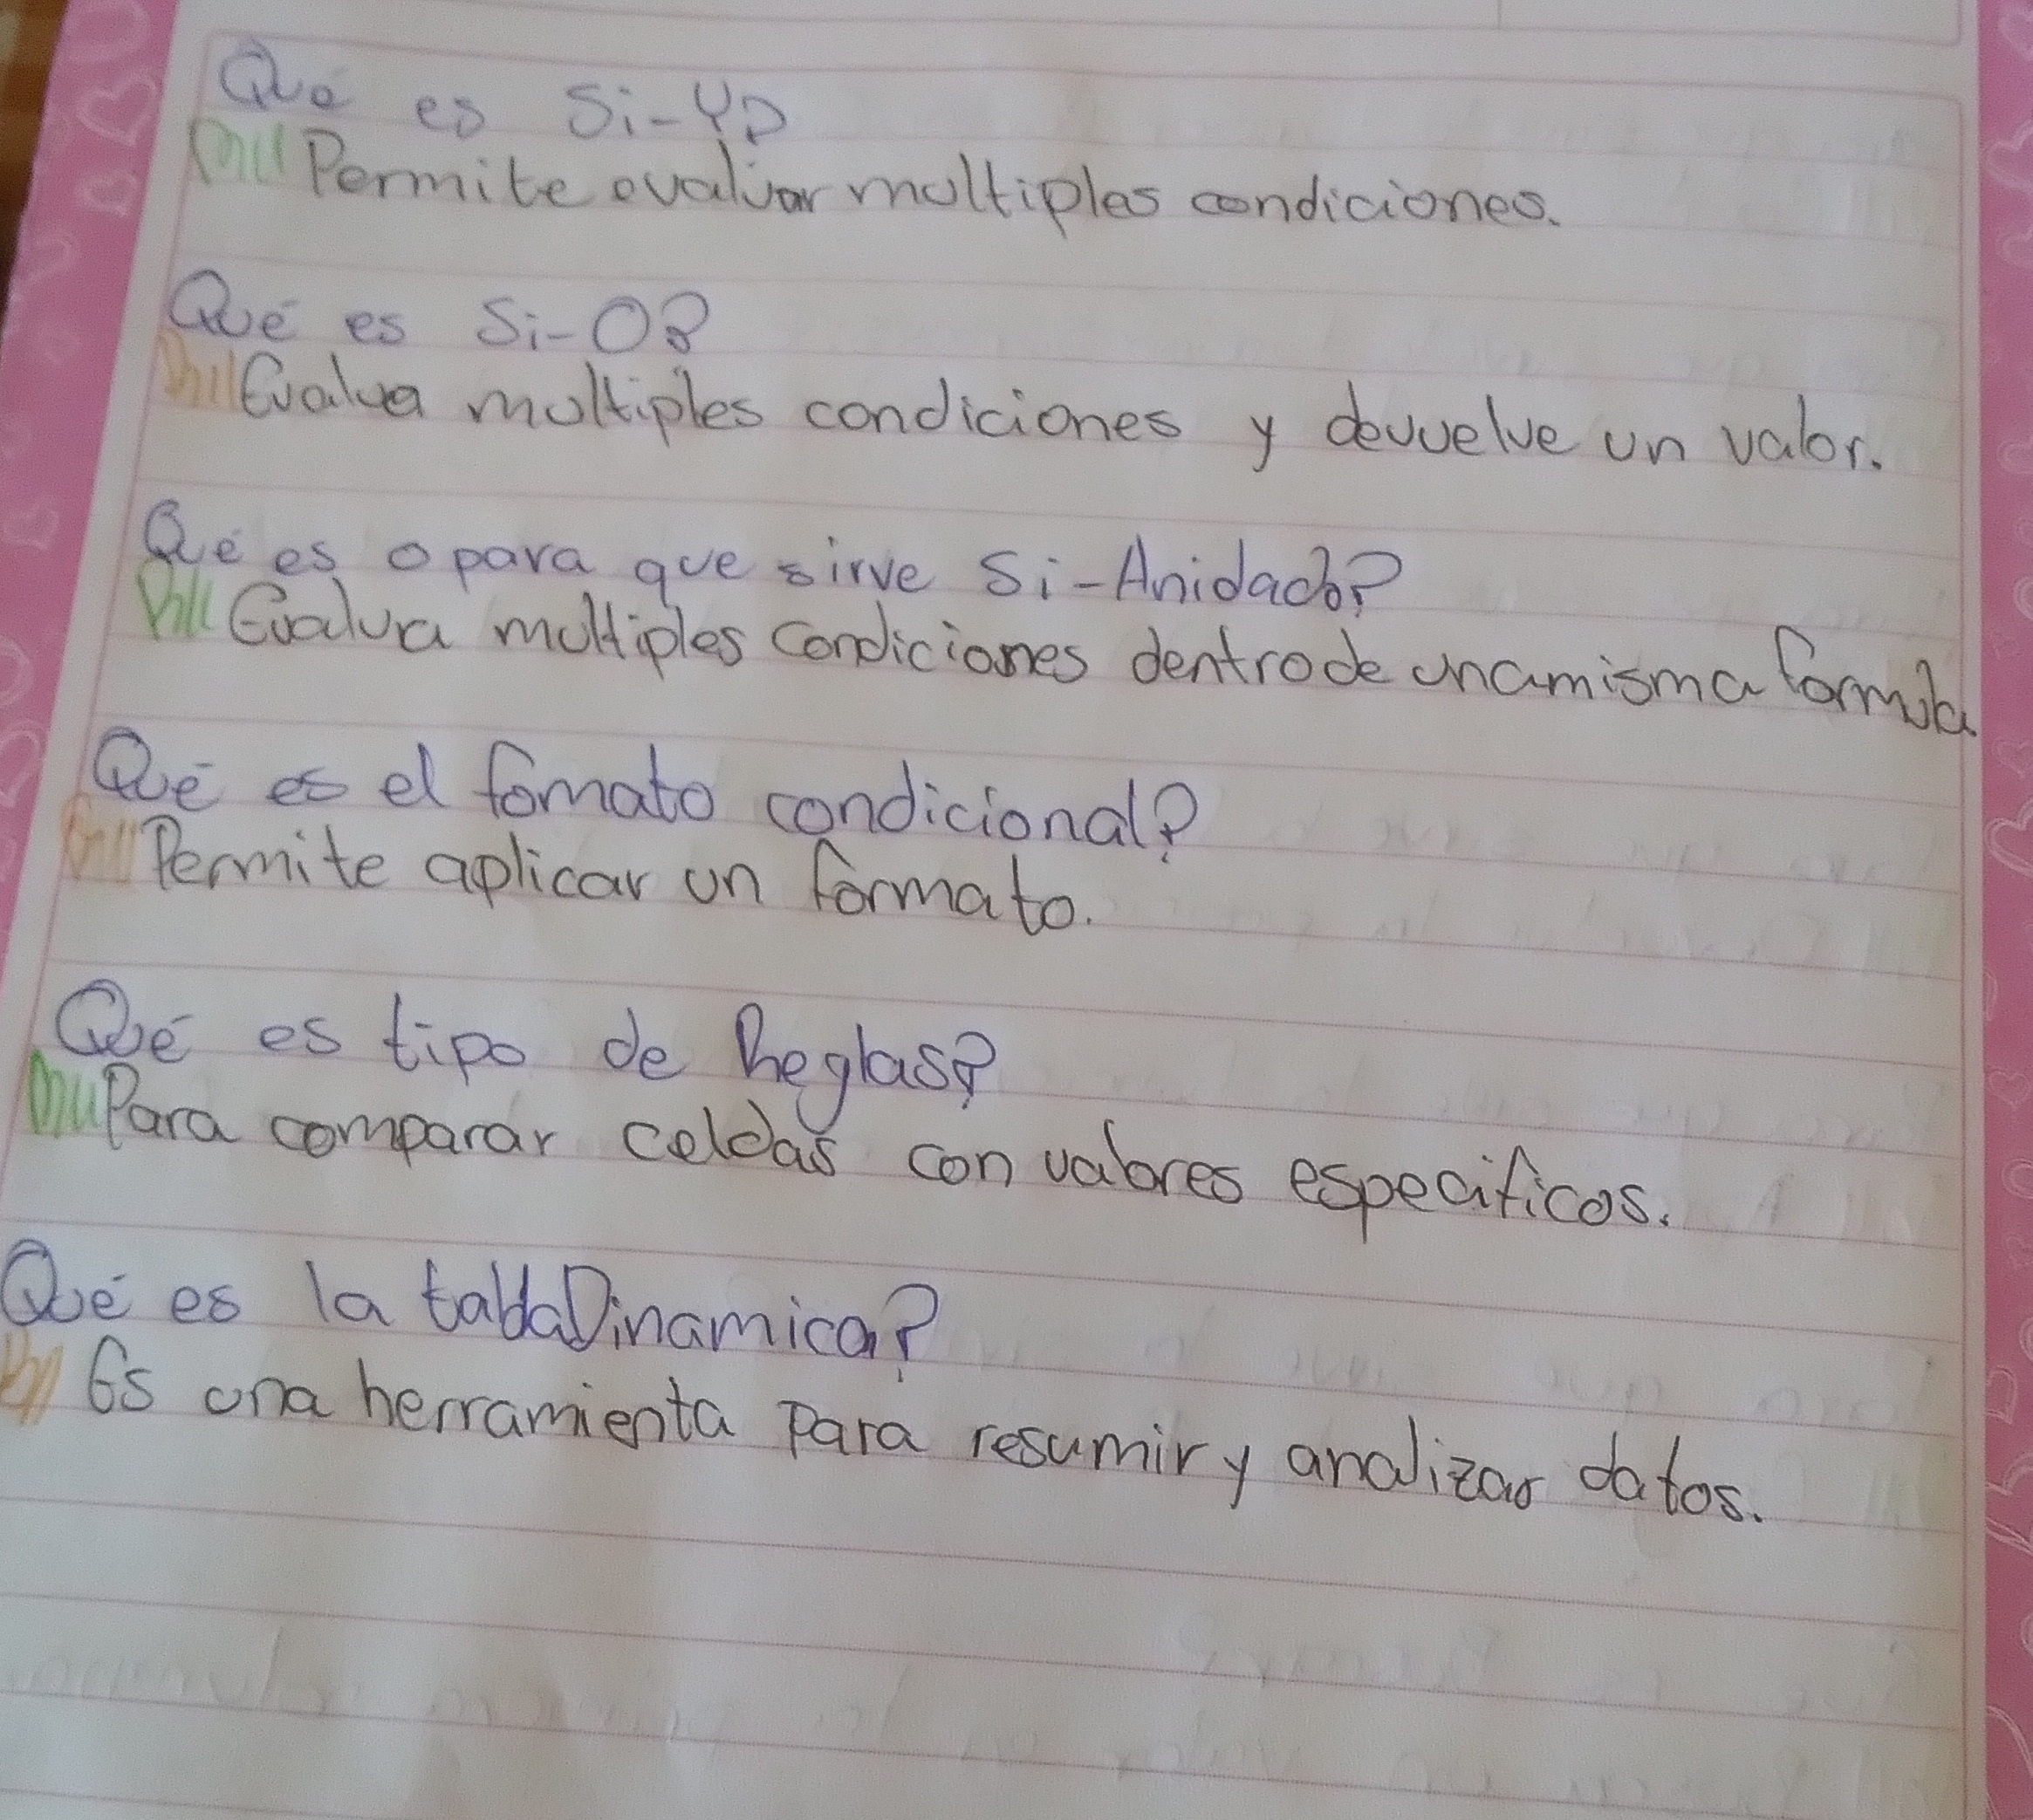 Qué es Si-Y?
Permite evaluar multiples condiciones.
Qué es Si-O?
Evalua multiples condiciones y devuelve un valor.
Qué es o para que sirve Si-Anidado?
Evalua multiples condiciones dentro de una misma formula.
Qué es el fomato condicional?
Permite aplicar un formato.
Qué es tipo de Reglas?
Para comparar celdas con valores especificos.
Qué es la tabla Dinamica?
Es una herramienta para resumir y analizar datos.